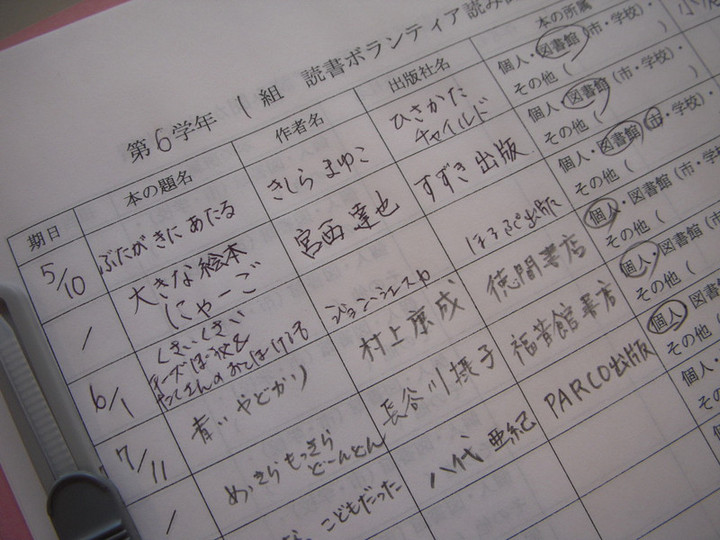 第6学年 1組 読書ボランティア読み
期日 本の題名 作者名 出版社名 本の所属
5/10 ぶたがきにあたる きしらまゆこ ひさかたチャイルド 個人・図書館(市・学校)・その他( )
/ 大きな絵本 にゃーご 宮西達也 すずき出版 個人・図書館(市・学校)・その他( )
6/1 くさいくさい チーズぼうや& ジョン・シェスカ ほるぷ出版 個人・図書館(市・学校)・その他( )
7/11 青いやどかり 村上康成 徳間書店 個人・図書館(市・学校)・その他( )
/ めっきらもっきら どーんどん 長谷川摂子 福音館書店 個人・図書館(市・学校)・その他( )
こどもだった 八代亜紀 PARCO出版 個人・図書館 その他(
個人・ その他